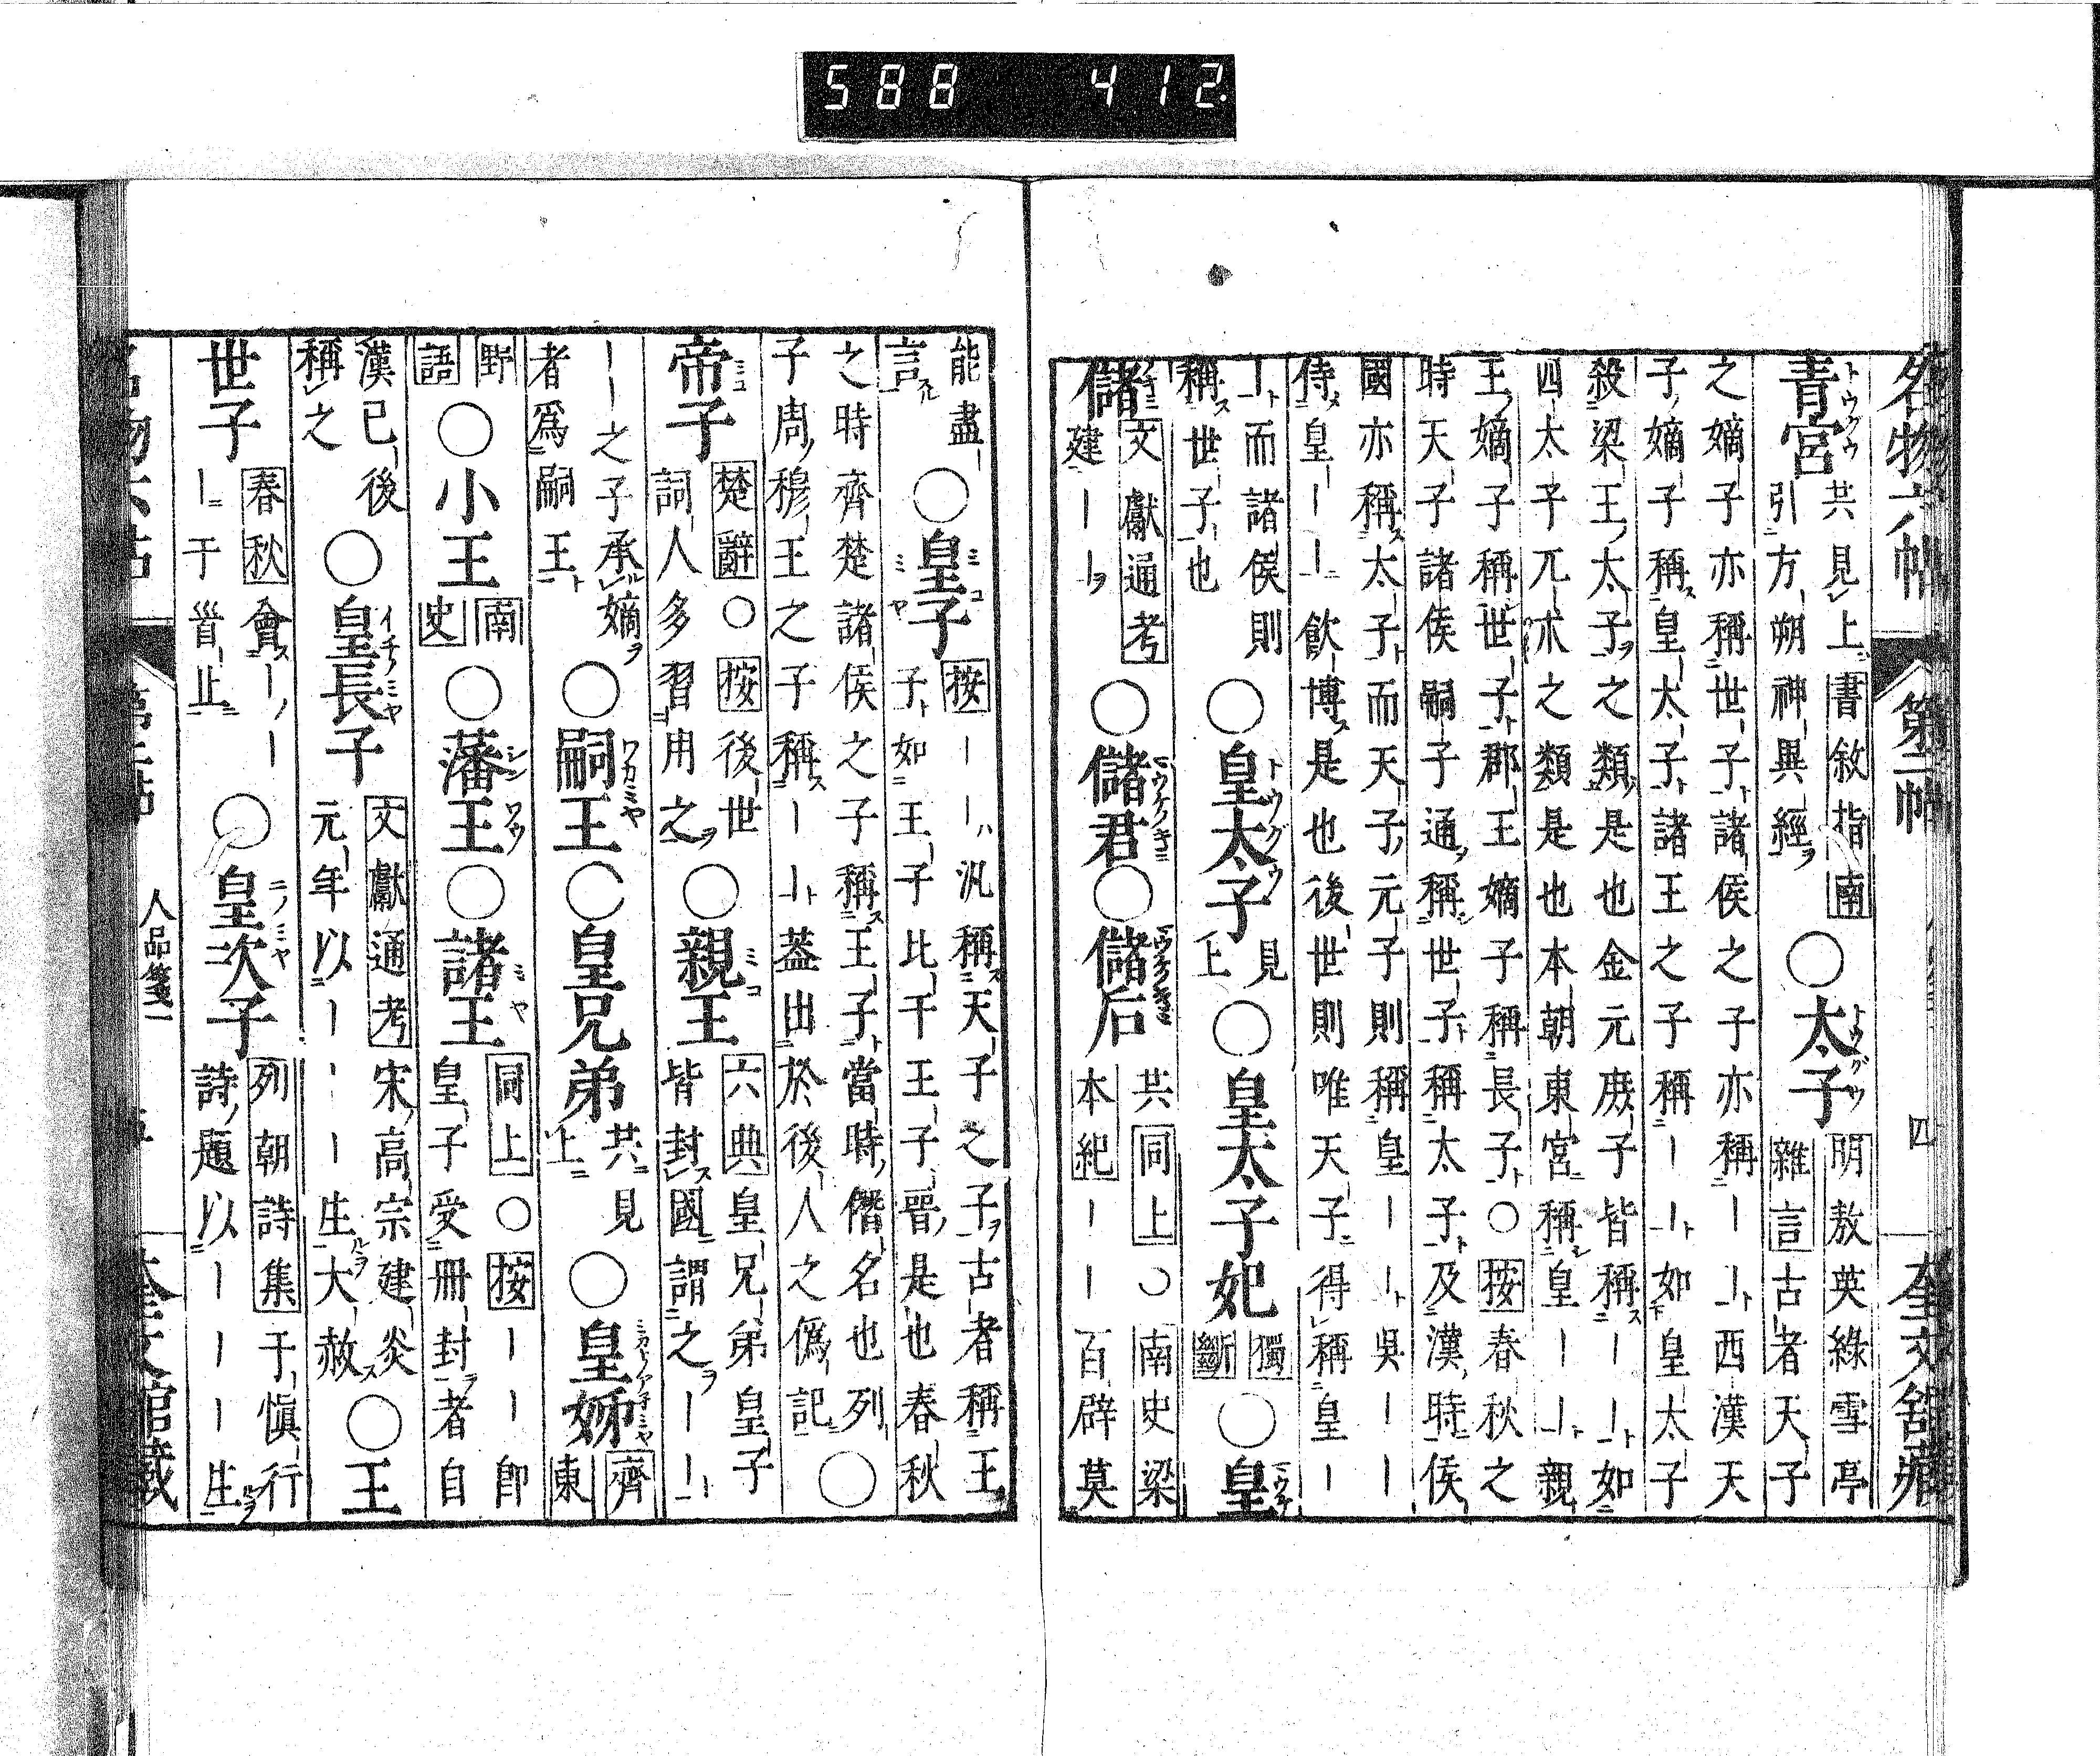 588 412.
名物六帖 第二帖 四 奎文舘藏
青宮 共見上書敘指南
引方朔神異經 ○太子 明敖英綠雪亭
雜言古者天子
之嫡子亦稱世子諸侯之子亦稱ーー西漢天
子嫡子稱皇太子諸王之子稱ーー如皇太子
殺梁王太子之類是也金元庶子皆稱ーー如
四太子兀朮之類是也本朝東宮稱皇ーー親
王嫡子稱世子郡王嫡子稱長子○按春秋之
時天子諸侯嗣子通稱世子稱太子及漢時侯
國亦稱太子而天子元子則稱皇ーー吳ーー
侍皇ーー飮博是也後世則唯天子得稱皇ー
ー而諸侯則
稱世子也 ○皇太子 見
上 ○皇太子妃 獨
斷 ○皇
儲 文獻通考
建ーー ○儲君○儲后 共同上○南史梁
本紀ーー百辟莫
能盡
言 ○皇子 按ーー汎稱天子之子古者稱王
子如王子比干王子晉是也春秋
之時齊楚諸侯之子稱王子當時僭名也列
子周穆王之子稱ーー蓋出於後人之僞記 ○
帝子 楚辭○按後世
詞人多習用之 ○親王 六典皇兄弟皇子
皆封國謂之ーー
ーー之子承嫡
者爲嗣王 ○嗣王○皇兄弟 共見
上 ○皇姊 齊
東
野
語 ○小王 南
史 ○藩王○諸王 同上○按ーー卽
皇子受冊封者自
漢已後
稱之 ○皇長子 文獻通考宋高宗建炎
元年以ーーー生大赦 ○王
世子 春秋會ーー
ー于首止 ○皇次子 列朝詩集于愼行
詩題以ーーー生
人品箋一